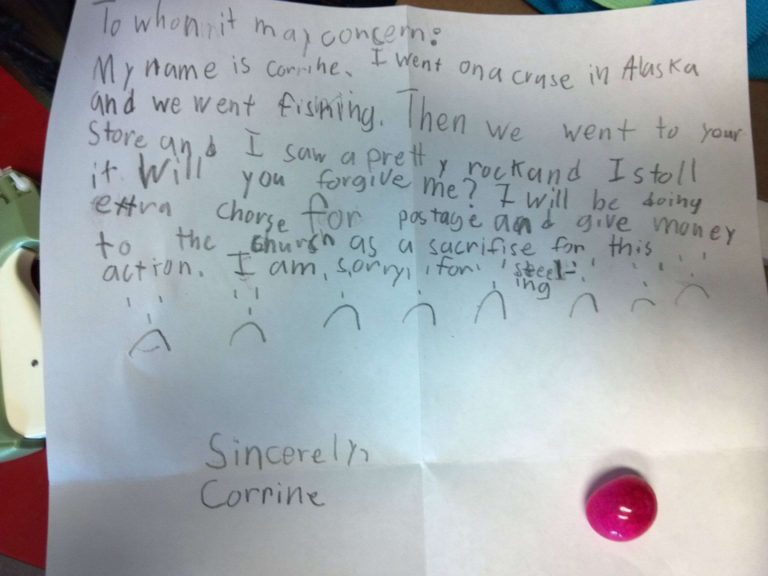 To whom it may concern:
My name is Corrine. I went on a cruse in Alaska
and we went fishing. Then we went to your
Store and I saw a pretty rock and I stoll
it. Will you forgive me? I will be doing
extra chorse for postage and give money
to the church as a sacrifise for this
action. I am sorry for steel-
ing
Sincerely,
Corrine